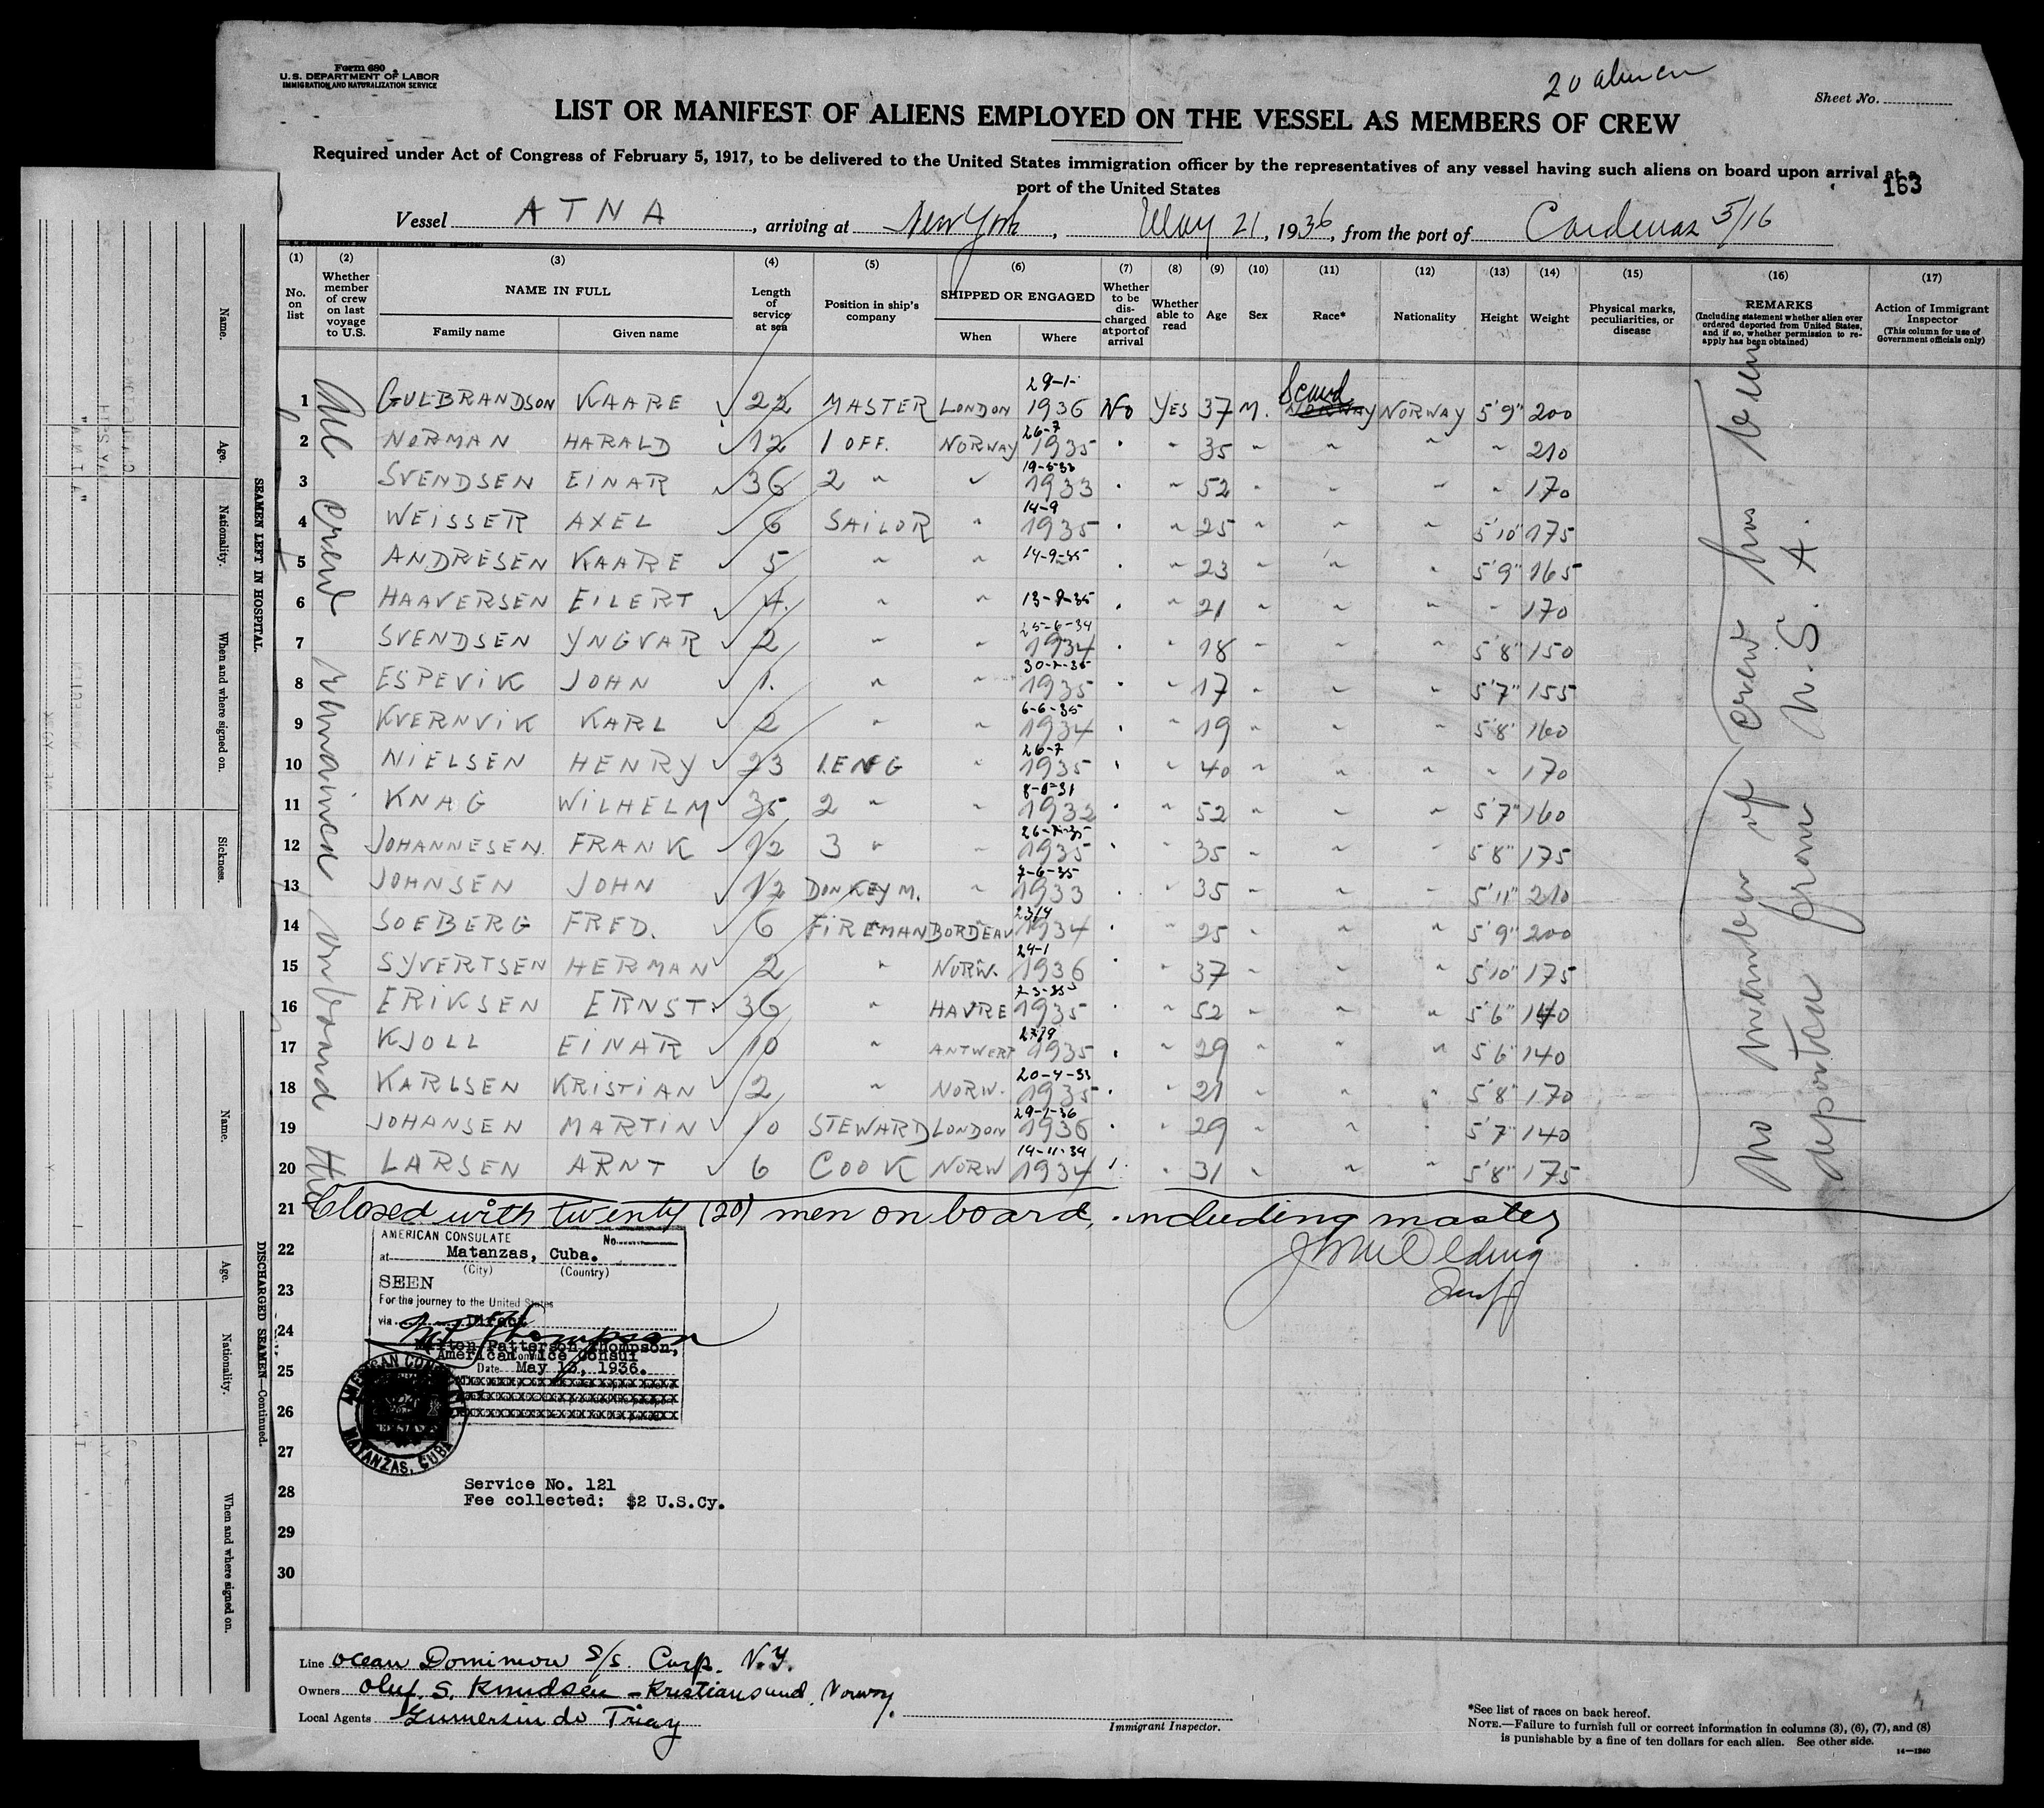 Form 680
U.S. DEPARTMENT OF LABOR
IMMIGRATION AND NATURALIZATION SERVICE
20 aliens
Sheet No.
LIST OR MANIFEST OF ALIENS EMPLOYED ON THE VESSEL AS MEMBERS OF CREW
Required under Act of Congress of February 5, 1917, to be delivered to the United States immigration officer by the representatives of any vessel having such aliens on board upon arrival at a
port of the United States
163
Vessel ATNA, arriving at New York, May 21, 1936, from the port of Cardenas 5/16
(1) No. on list
(2) Whether member of crew on last voyage to U.S.
(3) NAME IN FULL Family name Given name
(4) Length of service at sea
(5) Position in ship's company
(6) SHIPPED OR ENGAGED When Where
(7) Whether to be discharged at port of arrival
(8) Whether able to read
(9) Age
(10) Sex
(11) Race*
(12) Nationality
(13) Height
(14) Weight
(15) Physical marks, peculiarities, or disease
(16) REMARKS (Including statement whether alien ever ordered deported from United States, and if so, whether permission to re-apply has been obtained)
(17) Action of Immigrant Inspector (This column for use of Government officials only)
1 GULBRANDSON KAARE 22 MASTER LONDON 29-1- 1936 No YES 37 M. Scand NORWAY NORWAY 5'9" 200
2 NORMAN HARALD 12 1 OFF. NORWAY 26-7 1935 " " 35 " " " " 210
3 SVENDSEN EINAR 36 2 " " 19-5-33 1933 " " 52 " " " " 170
4 WEISSER AXEL 6 SAILOR " 14-9 1935 " " 25 " " " 5'10" 175
5 ANDRESEN KAARE 5 " " 14-9-35 " " 23 " " " 5'9" 165
6 HAAVERSEN EILERT 4. " " 13-9-35 " " 21 " " " " 170
7 SVENDSEN YNGVAR 2 " " 25-6-34 1934 " " 18 " " " 5'8" 150
8 ESPEVIK JOHN 1. " " 1935 " " 17 " " " 5'7" 155
9 KVERNVIK KARL 2 " " 6-6-35 1934 " " 19 " " " 5'8" 160
10 NIELSEN HENRY 23 1.ENG " 26-7 1935 " " 40 " " " " 170
11 KNAG WILHELM 35 2 " " 1932 " " 52 " " " 5'7" 160
12 JOHANNESEN FRANK 12 3 " " 26-7-35 1935 " " 35 " " " 5'8" 175
13 JOHNSEN JOHN 12 DONKEY M. " 7-6-35 1933 " " 35 " " " 5'11" 210
14 SOEBERG FRED. 6 FIREMAN BORDEAU 23/4 1934 " " 25 " " " 5'9" 200
15 SYVERTSEN HERMAN 2 " NORW. 29-1 1936 " " 37 " " " 5'10" 175
16 ERIKSEN ERNST 36 " HAVRE 7-3-35 1935 " " 52 " " " 5'6" 140
17 KJOLL EINAR 10 " ANTWERP 1935 " " 29 " " " 5'6" 140
18 KARLSEN KRISTIAN 2 " NORW. 20-4-33 1935 " " 21 " " " 5'8" 170
19 JOHANSEN MARTIN 10 STEWARD LONDON 29-1-36 1936 " " 29 " " " 5'7" 140
20 LARSEN ARNT 6 COOK NORW 14-11-34 1934 " " 31 " " " 5'8" 175
All crew remained onboard
No member of crew has been
deported from U.S.A.
21 Closed with twenty (20) men on board, including master
22
23
24
25
26
27
28
29
30
AMERICAN CONSULATE No.
at Matanzas, Cuba.
(City) (Country)
SEEN
For the journey to the United States
via Direct
Milton Patterson Thompson,
American Vice Consul
Date May 15, 1936.
AMERICAN CONSULATE MATANZAS, CUBA
Service No. 121
Fee collected: $2 U.S.Cy.
Line Ocean Dominion S/S. Corp. N.Y.
Owners Oluf. S. Knudsen - Kristiansund, Norway.
Local Agents Gumersindo Triay
Immigrant Inspector.
*See list of races on back hereof.
NOTE.—Failure to furnish full or correct information in columns (3), (6), (7), and (8)
is punishable by a fine of ten dollars for each alien. See other side.
14—1240
SEAMEN LEFT IN HOSPITAL.
Name.
Age.
Nationality.
When and where signed on.
Sickness.
DISCHARGED SEAMEN—Continued.
Name.
Age.
Nationality.
When and where signed on.